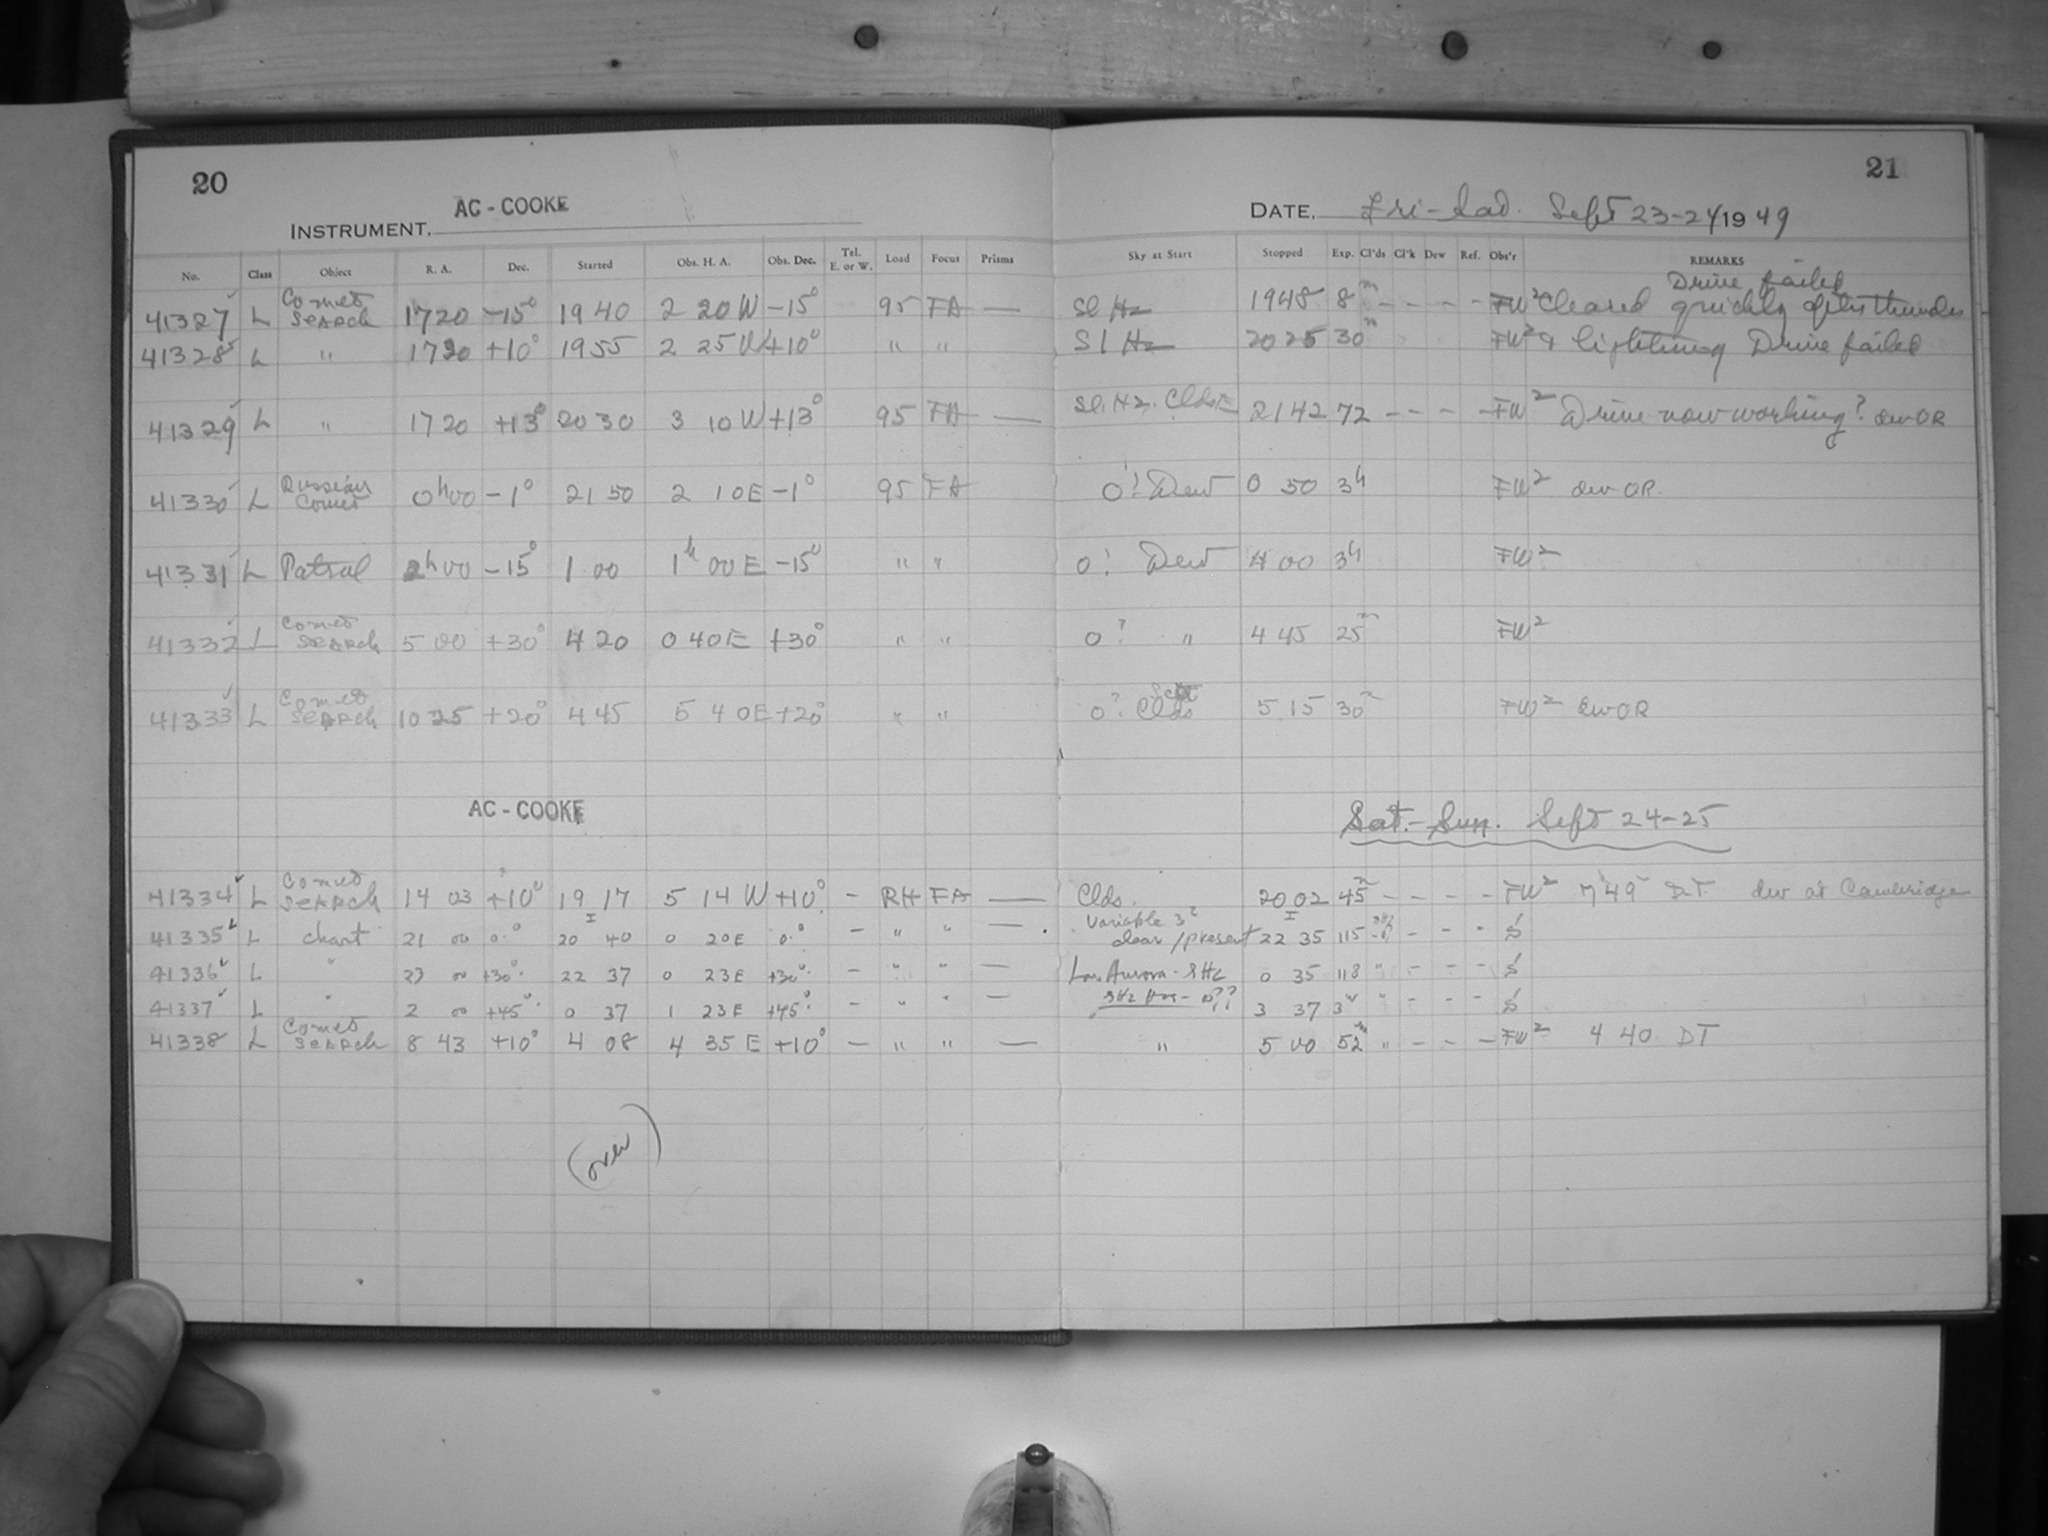 20
INSTRUMENT. AC - COOKE
No. Class Object R. A. Dec. Started Obs. H. A. Obs. Dec. Tel. E. or W. Load Focus Prisms
41327 L Comet Search 17 20 -15° 19 40 2 20 W -15° 95 FA —
41328 L " 17 30 +10° 19 55 2 25 W +10° " "
41329 L " 17 20 +13° 20 30 3 10 W +13° 95 FA —
41330 L Russian Comet 0h00 -1° 21 50 2 10 E -1° 95 FA
41331 L Patrol 2h00 -15° 1 00 1h 00 E -15° " "
41332 L Comet Search 5 00 +30° 4 20 0 40 E +30° " "
41333 L Comet Search 10 25 +20° 4 45 5 40 E +20° " "
AC - COOKE
41334 L Comet Search 14 03 +10° 19 17 5 14 W +10° - RH FA —
41335 L chart 21 00 0° 20 40 0 20 E 0° - " " —
41336 L " 23 00 +30° 22 37 0 23 E +30° - " " —
41337 L " 2 00 +45° 0 37 1 23 E +45° - " " —
41338 L Comet Search 8 43 +10° 4 08 4 35 E +10° - " " —
(over)
21
DATE, Fri-Sad. Sept 23-24 1949
Sky at Start Stopped Exp. Cl'ds Cl'k Dew Ref. Obs'r REMARKS
Drive failed
Sl Hz 19 48 8m - - - - FW2 Cleared quickly after thunder
Sl Hz 20 25 30m FW2 & lightning Drive failed
Sl. Hz. Clds E 21 42 72 - - - - FW2 Drive now working? dew OR
0! Dew 0 50 3h FW2 dew OR.
0! Dew 4 00 3h FW2
0? " 4 45 25m FW2
0? Sct Clds 5 15 30m FW2 dew OR
Sat.-Sun. Sept 24-25
Clds. 20 02 45m - - - - FW2 7 49 DT dew at Cambridge
Variable 3?
clear / present 22 35 115 - - - S
Low Aurora - SHz 0 35 118 " - - - S
SHz Hor - 0?? 3 37 3h " - - - S
" 5 00 52m " - - - FW2 4 40 DT